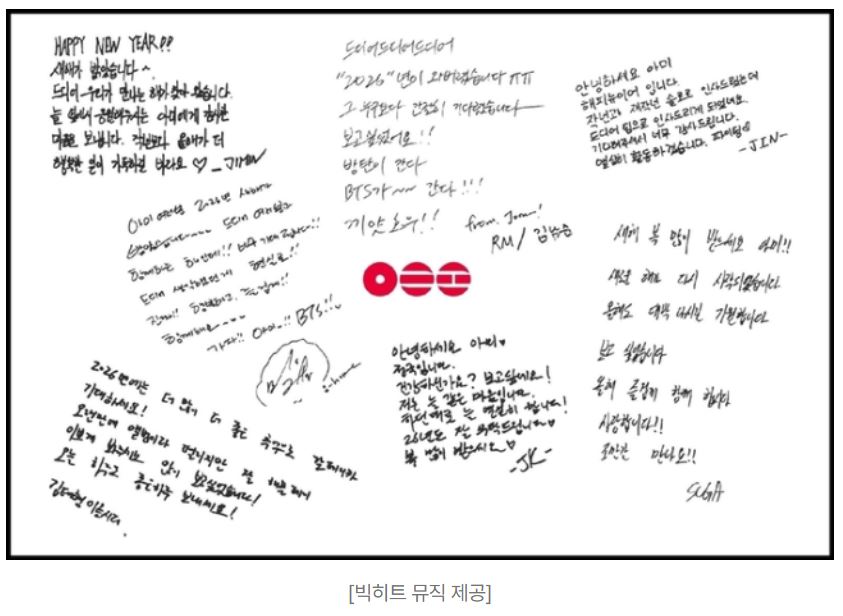 HAPPY NEW YEAR!!
새해가 밝았습니다 ~.
드디어 우리가 만나는 해가 찾아 왔습니다.
늘 앞에서 응원해주시는 아미에게
마음을 보냅니다. 작년보다 올해가 더
행복한 일이 가득하길 바라요 ♡ _JIMIN
드디어드디어드디어
"2026"년이 와버렸습니다 ㅠㅠ
그 누구보다 간절히 기다렸습니다
보고싶었어요!!
방탄이 간다
BTS가~~ 간다!!!
끼얏호우!!
from. Joon!
RM / 김남준
안녕하세요 아미
해피뉴이어 입니다.
작년과 재작년 솔로로 인사드렸는데
드디어 팀으로 인사드리게 되었네요.
기다려주셔서 너무 감사드립니다.
열심히 활동하겠습니다. 파이팅
-JIN-
아미 여러분 2026년 새해가
밝았습니다~~~ 드디어 여러분과
함께하는 한해!! 너무 기대됩니다!!
드디어 생각했던게 현실로!!
진짜!! 행복하고, 즐겁게!!
함께해요~~~
가자!! 아미!! BTS!!
j-hope
새해 복 많이 받으세요 아미!!
새로운 해가 다시 시작되었습니다
올해도 대박 나시길 기원합니다
보고 싶었습니다
올해 즐겁게 함께 합시다
사랑합니다!!
조만간 만나요!!
SUGA
안녕하세요 아미.
정국입니다.
건강하신가요? 보고싶네요!
저는 늘 같은 마음입니다.
하던대로 늘 열심히 합니다!
26년도 잘 부탁드립니다♡
복 많이 받으시오♡
-JK-
2026년에는 더 많이 더 좋은 추억으로 갈테니까
기대하세요!
오랜만에 앨범이라 떨리지만 잘 해볼테니
이쁘게 봐주시오 많이 보고싶었습니다!
오늘 하루도 좋은하루 보내세요!
김태형이올시다.
[빅히트 뮤직 제공]